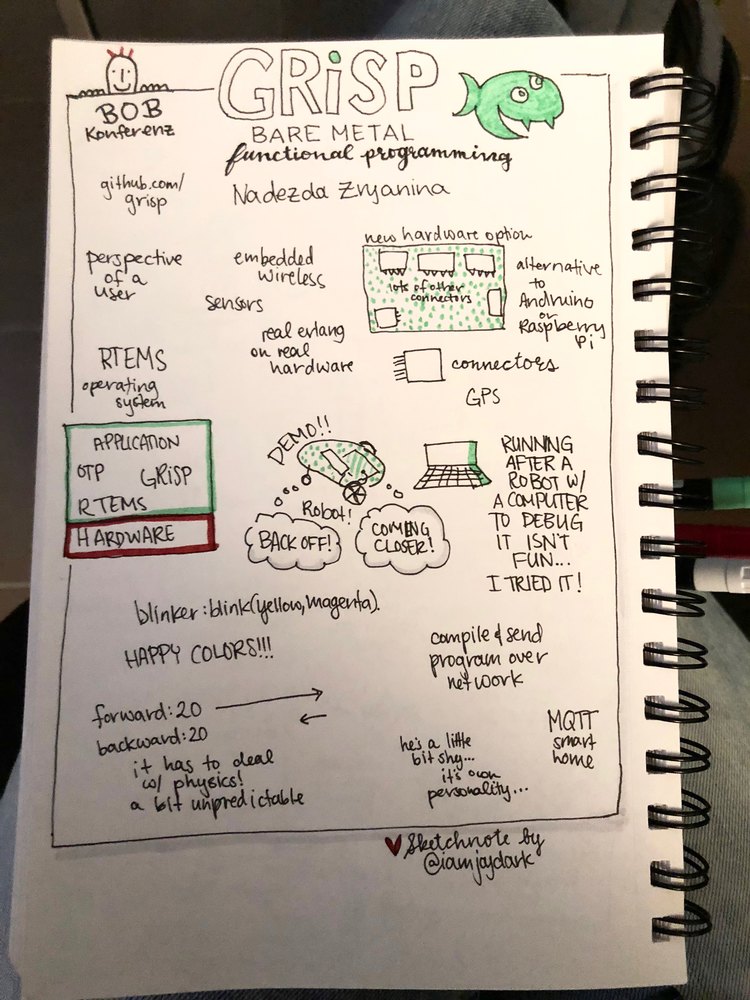 GRiSP
BOB
Konferenz
BARE METAL
functional programming
github.com/
grisp
Nadezda Zryanina
perspective
of a
user
embedded
wireless
sensors
real erlang
on real
hardware
new hardware option
lots of other
connectors
alternative
to
Andruino
or
Raspberry
Pi
RTEMS
operating
system
connectors
GPS
APPLICATION
OTP GRiSP
RTEMS
HARDWARE
DEMO!!
Robot!
BACK OFF!
COMING
CLOSER!
RUNNING
AFTER A
ROBOT W/
A COMPUTER
TO DEBUG
IT ISN'T
FUN...
I TRIED IT!
blinker:blink(yellow,magenta).
HAPPY COLORS!!!
compile & send
program over
network
forward:20
backward:20
it has to deal
w/ physics!
a bit unpredictable
he's a little
bit shy...
it's own
personality...
MQTT
smart
home
Sketchnote by
@iamjaydark